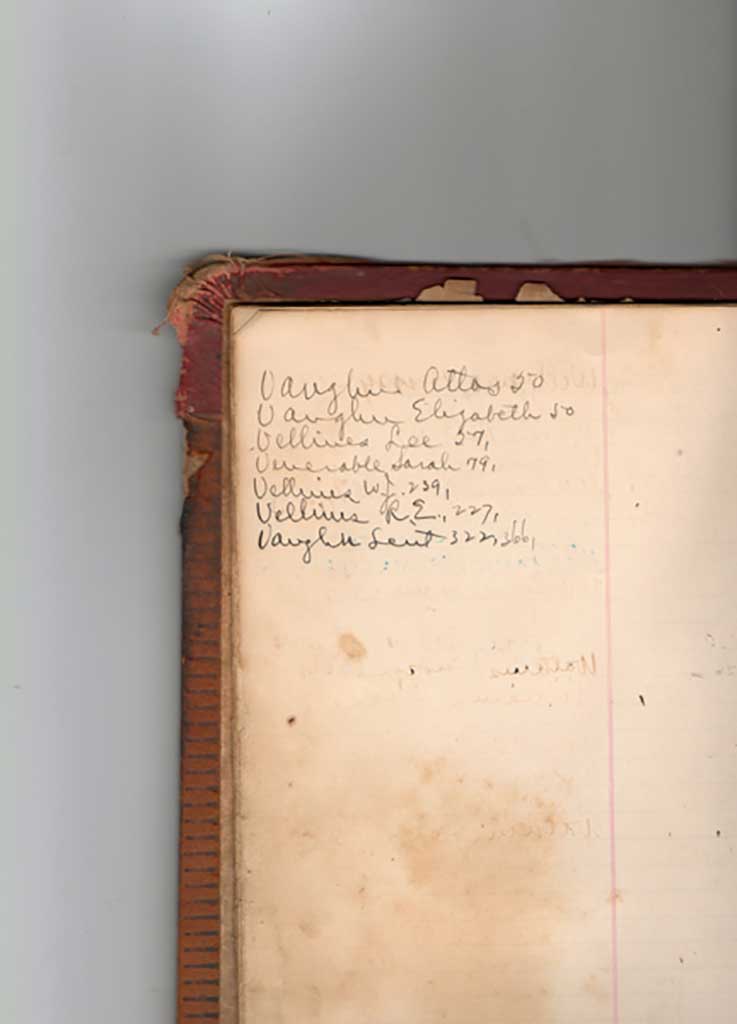 Vaughn Atlas 50
Vaughn Elizabeth 50
Vellines Lee 57,
Venerable Sarah 79,
Vellines W. 239,
Vellines R.E., 227,
Vaughn 322, 366,